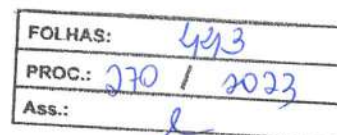 FOLHAS: 443
PROC.: 270 / 2023
Ass.: